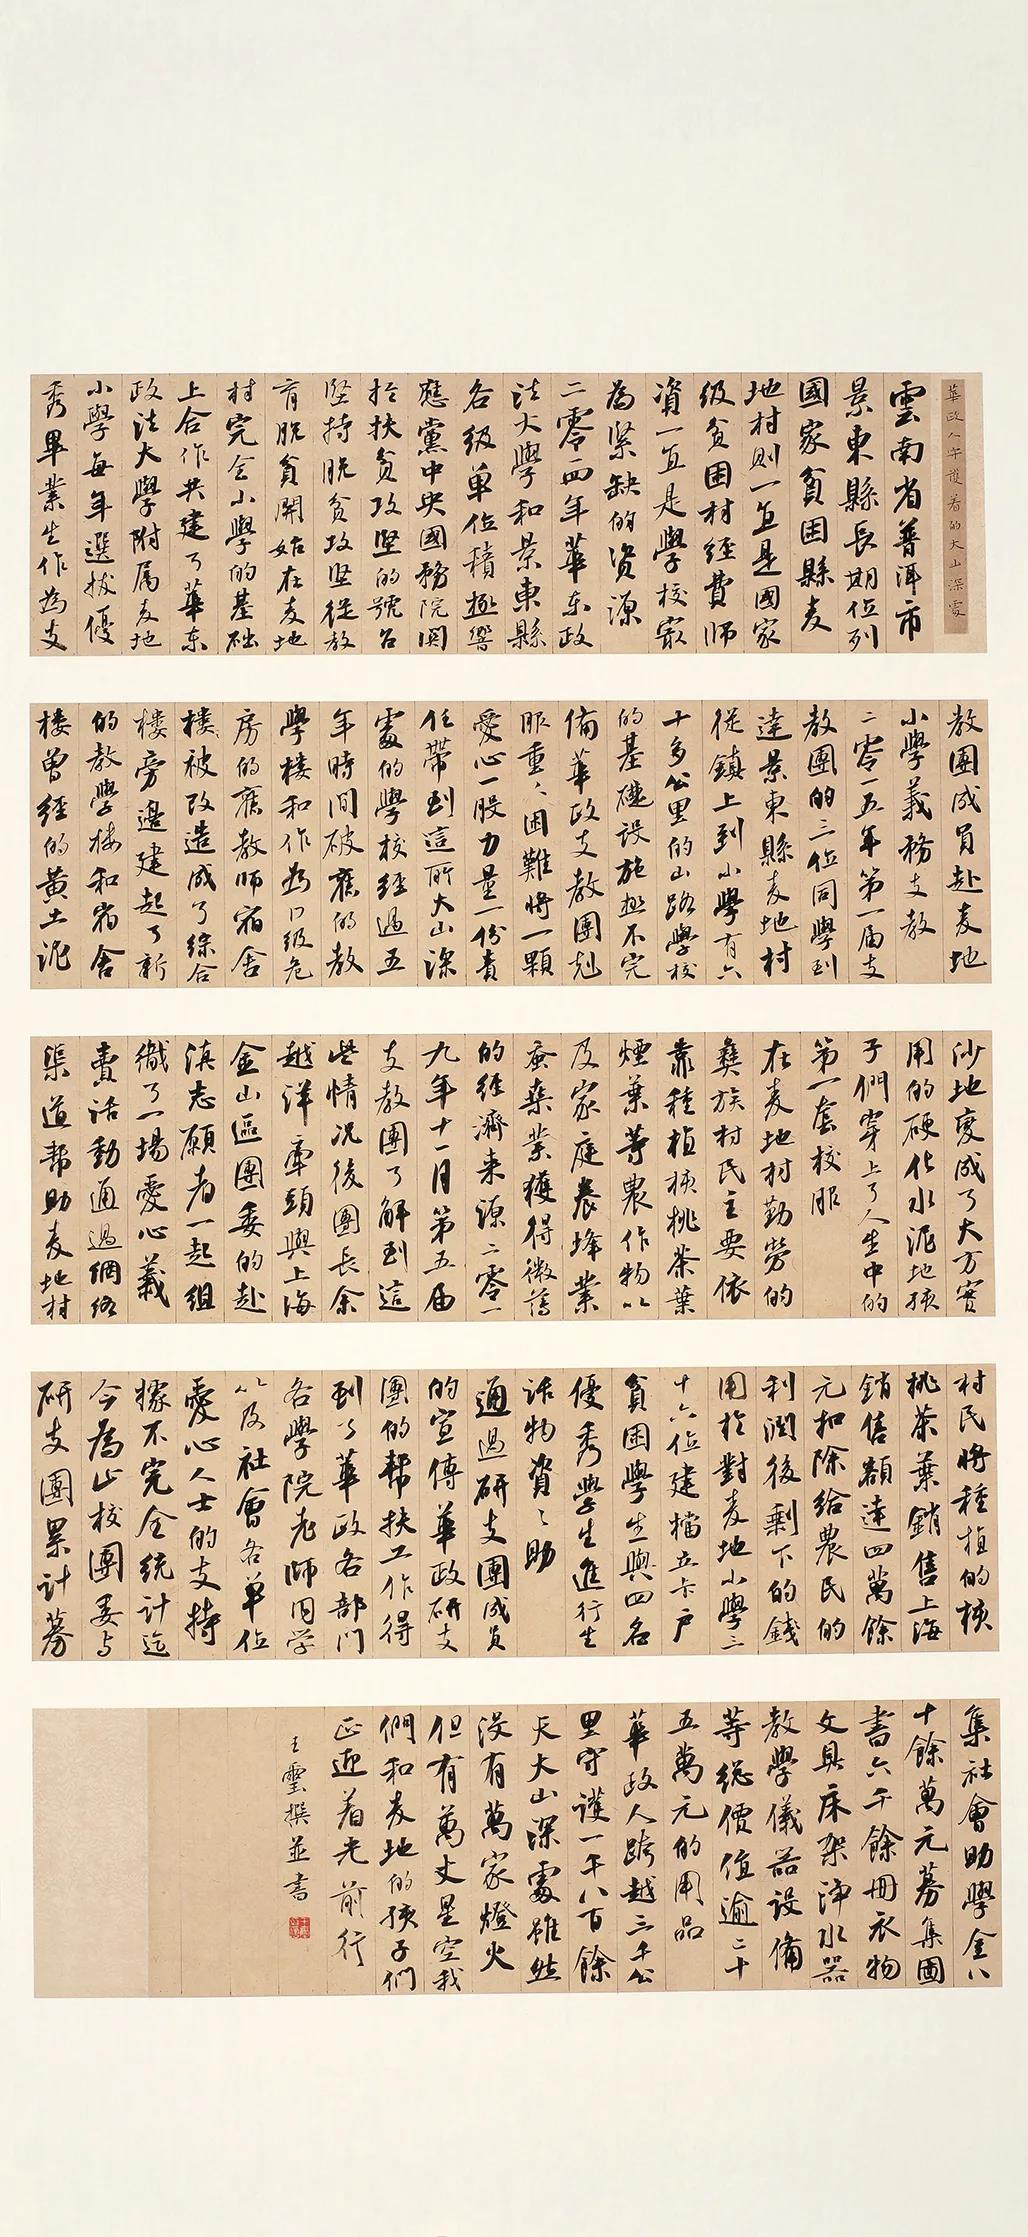 華政人守護着的大山深處
雲南省普洱市
景東縣長期位列
國家貧困縣麦
地村則一直是國家
級貧困村經費師
資一直是學校最
為緊缺的資源
二零一四年華东政
法大學和景東縣
各級单位積極響
應黨中央國務院関
於扶貧攻堅的號召
堅持脱貧攻堅從教
育脱貧開始在麦地
村完全小學的基础
上合作共建了華东
政法大學附属麦地
小學每年選拔優
秀畢業生作為支
教團成員赴麦地
小學義務支教
二零一五年第一届支
教團的三位同學到
達景東縣麦地村
從鎮上到小學有六
十多公里的山路學校
的基礎設施極不完
備華政支教團尅
服重々困難將一顆
愛心一股力量一份責
任帶到這所大山深
處的學校經過五
年時間破舊的教
學楼和作為D級危
房的舊教師宿舍
楼被改造成了綜合
楼旁邊建起了新
的教學楼和宿舍
楼曾經的黄土泥
沙地變成了大方實
用的硬化水泥地孩
子們穿上了人生中的
第一套校服
在麦地村勤勞的
彝族村民主要依
靠種植核桃茶葉
煙葉等農作物以
及家庭養蜂業
蚕桑業獲得微薄
的經濟来源二零一
九年十一月第五届
支教團了解到這
些情况後團長余
越洋牽頭與上海
金山區團委的赴
滇志願者一起組
織了一場愛心義
賣活動通過網络
渠道帮助麦地村
村民將種植的核
桃茶葉銷售上海
銷售額達四萬餘
元扣除給農民的
利潤後剩下的錢
用於對麦地小學三
十六位建檔立卡户
貧困學生與四名
優秀學生進行生
活物資々助
通過研支團成員
的宣傳華政研支
團的幫扶工作得
到了華政各部門
各學院老師同学
以及社會各单位
愛心人士的支持
據不完全統計迄
今為止校團委与
研支團累计募
集社會助學金八
十餘萬元募集圖
書六千餘冊衣物
文具床架淨水器
教學儀器設備
等総價值逾二十
五萬元的用品
華政人跨越三千公
里守護一千八百餘
天大山深處雖然
沒有萬家燈火
但有萬丈星空我
們和麦地的孩子們
正迎着光前行
王雲撰並書